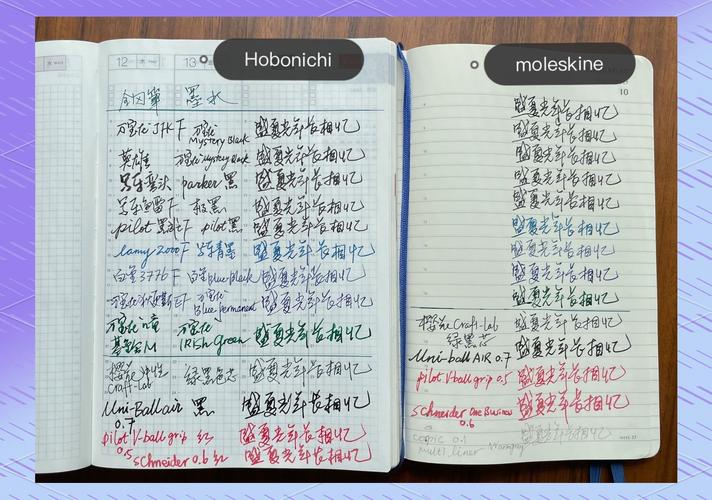 Hobonichi
moleskine
12
13
10
钢笔 墨水
万宝龙 JFK F 万宝龙 Mystery Black 盛夏光年长相忆
英雄 万宝龙 Mystery Black 盛夏光年长相忆
写乐弯头 parker 黑 盛夏光年长相忆
写乐 F 极黑 盛夏光年长相忆
pilot F pilot 黑 盛夏光年长相忆
lamy 2000 F 写乐青墨 盛夏光年长相忆
白金 3776 F 白金 blue black 盛夏光年长相忆
万宝龙 EF 万宝龙 Blue permanent 盛夏光年长相忆
万宝龙 M 万宝龙 IRish Green 盛夏光年长相忆
樱花 中性 Craft-Lab 绿黑色芯 盛夏光年长相忆
Uni-Ball air 0.7 黑 盛夏光年长相忆
pilot V-ball grip 0.5 红 盛夏光年长相忆
Schneider 0.6 红 盛夏光年长相忆
盛夏光年长相忆
盛夏光年长相忆
盛夏光年长相忆
盛夏光年长相忆
盛夏光年长相忆
盛夏光年长相忆
盛夏光年长相忆
盛夏光年长相忆
盛夏光年长相忆
樱花 Craft-lab 绿黑芯 盛夏光年长相忆
Uni-ball AIR 0.7 盛夏光年长相忆
pilot V-ball grip 0.5 盛夏光年长相忆
Schneider One Business 0.6 盛夏光年长相忆
copic 0.1 multi liner 盛夏光年长相忆